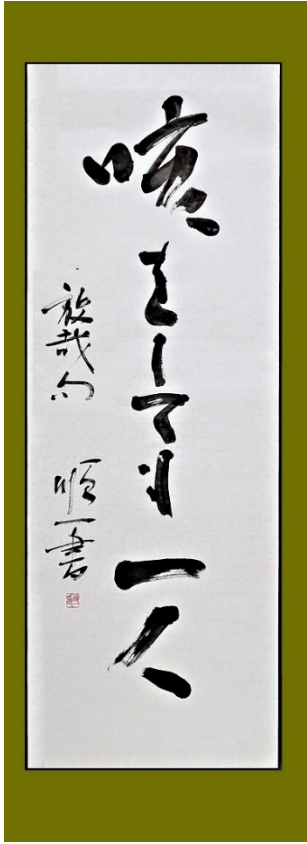 咳をしても一人
放哉句 順一書